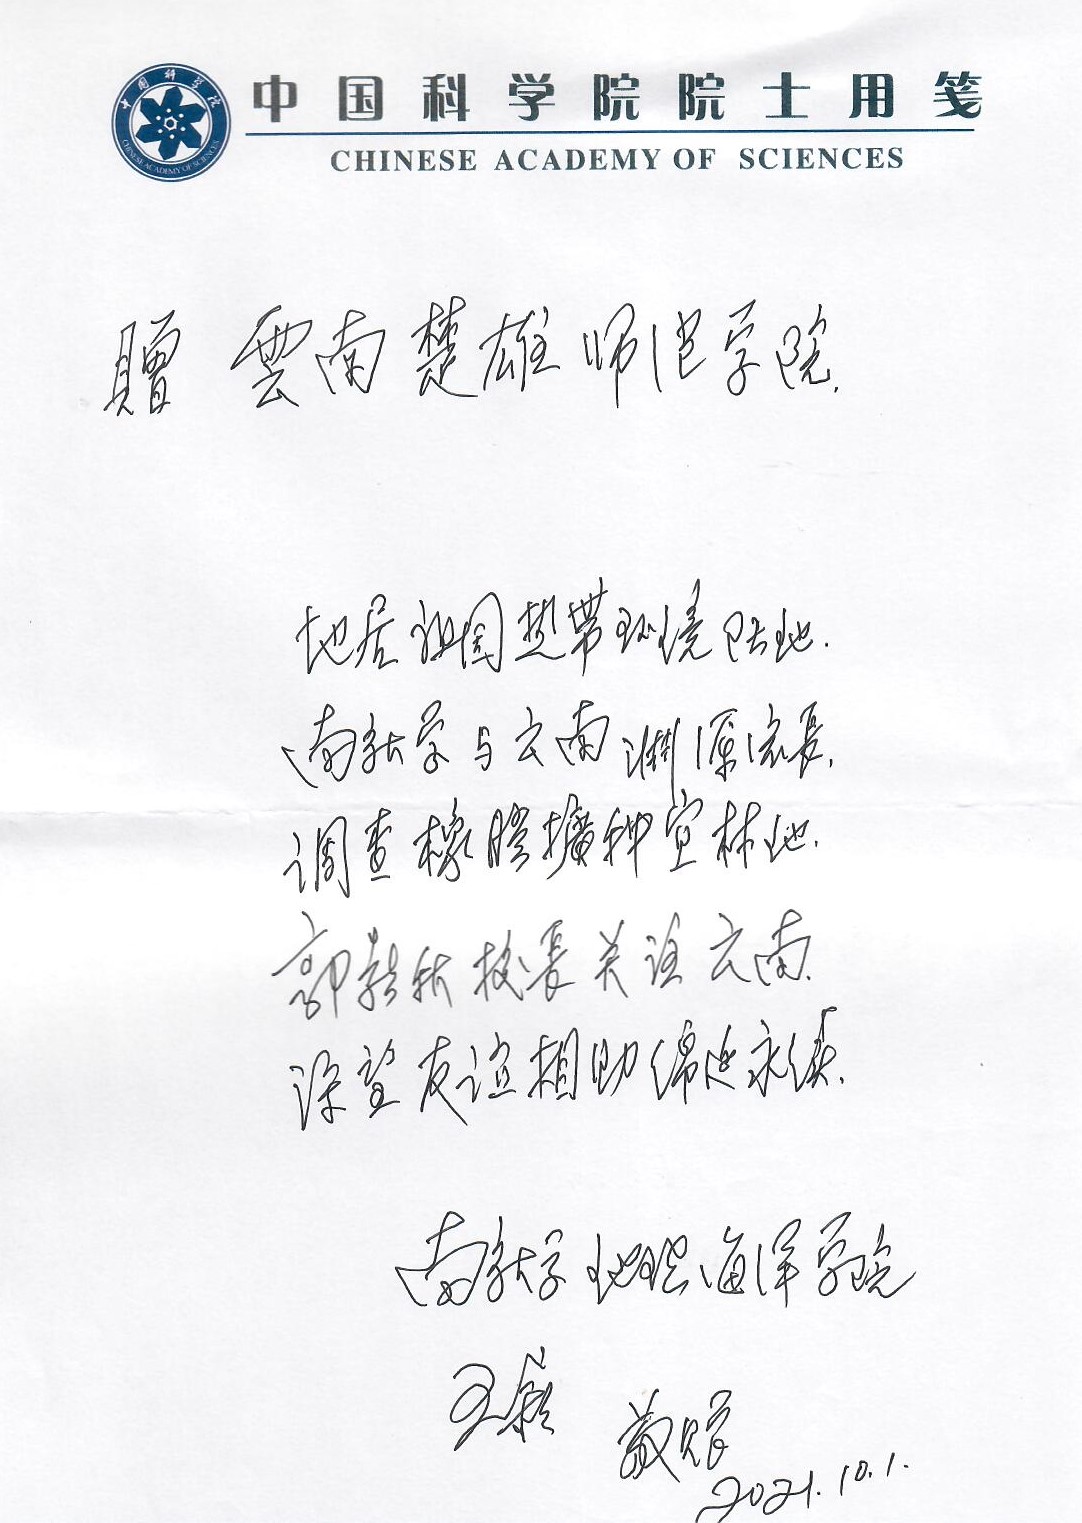 中国科学院院士用笺
CHINESE ACADEMY OF SCIENCES
中国科学院
CHINESE ACADEMY OF SCIENCES
贈 雲南楚雄师范学院.
地居祖国热带环境陆地.
南京大学与云南渊源流长.
调查橡胶擴种宜林地.
郭 校长关注云南.
深望友谊相助绵延永续.
南京大学地理海洋学院
王颖 敬赠
2021.10.1.